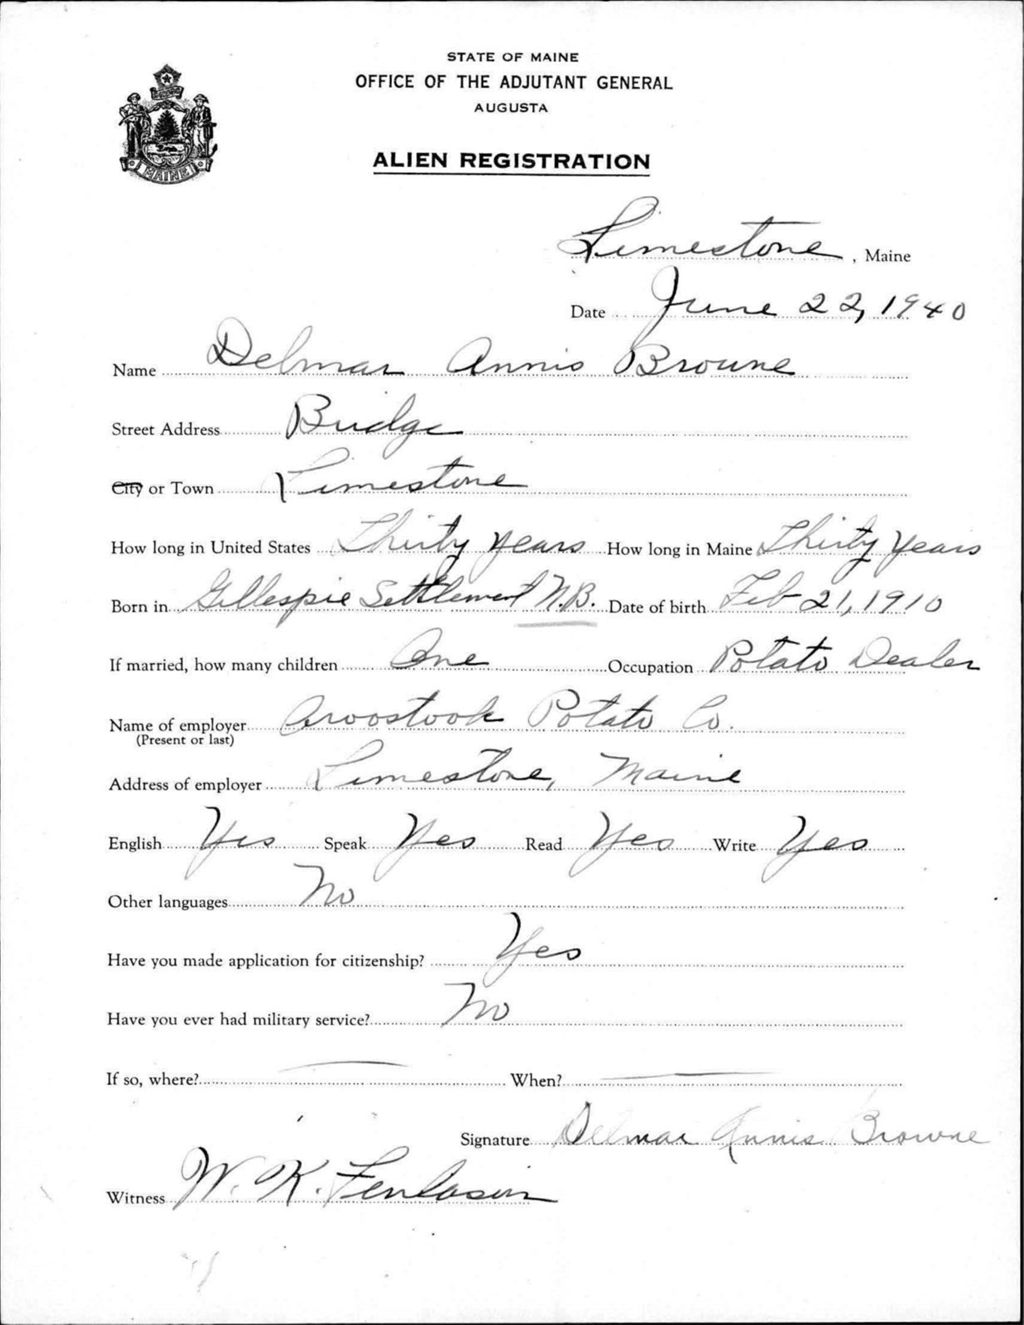 STATE OF MAINE
OFFICE OF THE ADJUTANT GENERAL
AUGUSTA
MAINE
ALIEN REGISTRATION
Limestone, Maine
Date June 22, 1940
Name Delmar Annis Browne
Street Address Bridge
City or Town Limestone
How long in United States Thirty years How long in Maine Thirty years
Born in Gillespie Settlement N.B. Date of birth Feb 21, 1910
If married, how many children One Occupation Potato Dealer
Name of employer Aroostook Potato Co.
(Present or last)
Address of employer Limestone, Maine
English Yes Speak Yes Read Yes Write Yes
Other languages No
Have you made application for citizenship? Yes
Have you ever had military service? No
If so, where? When?
Signature Delmar Annis Browne
Witness W. K.